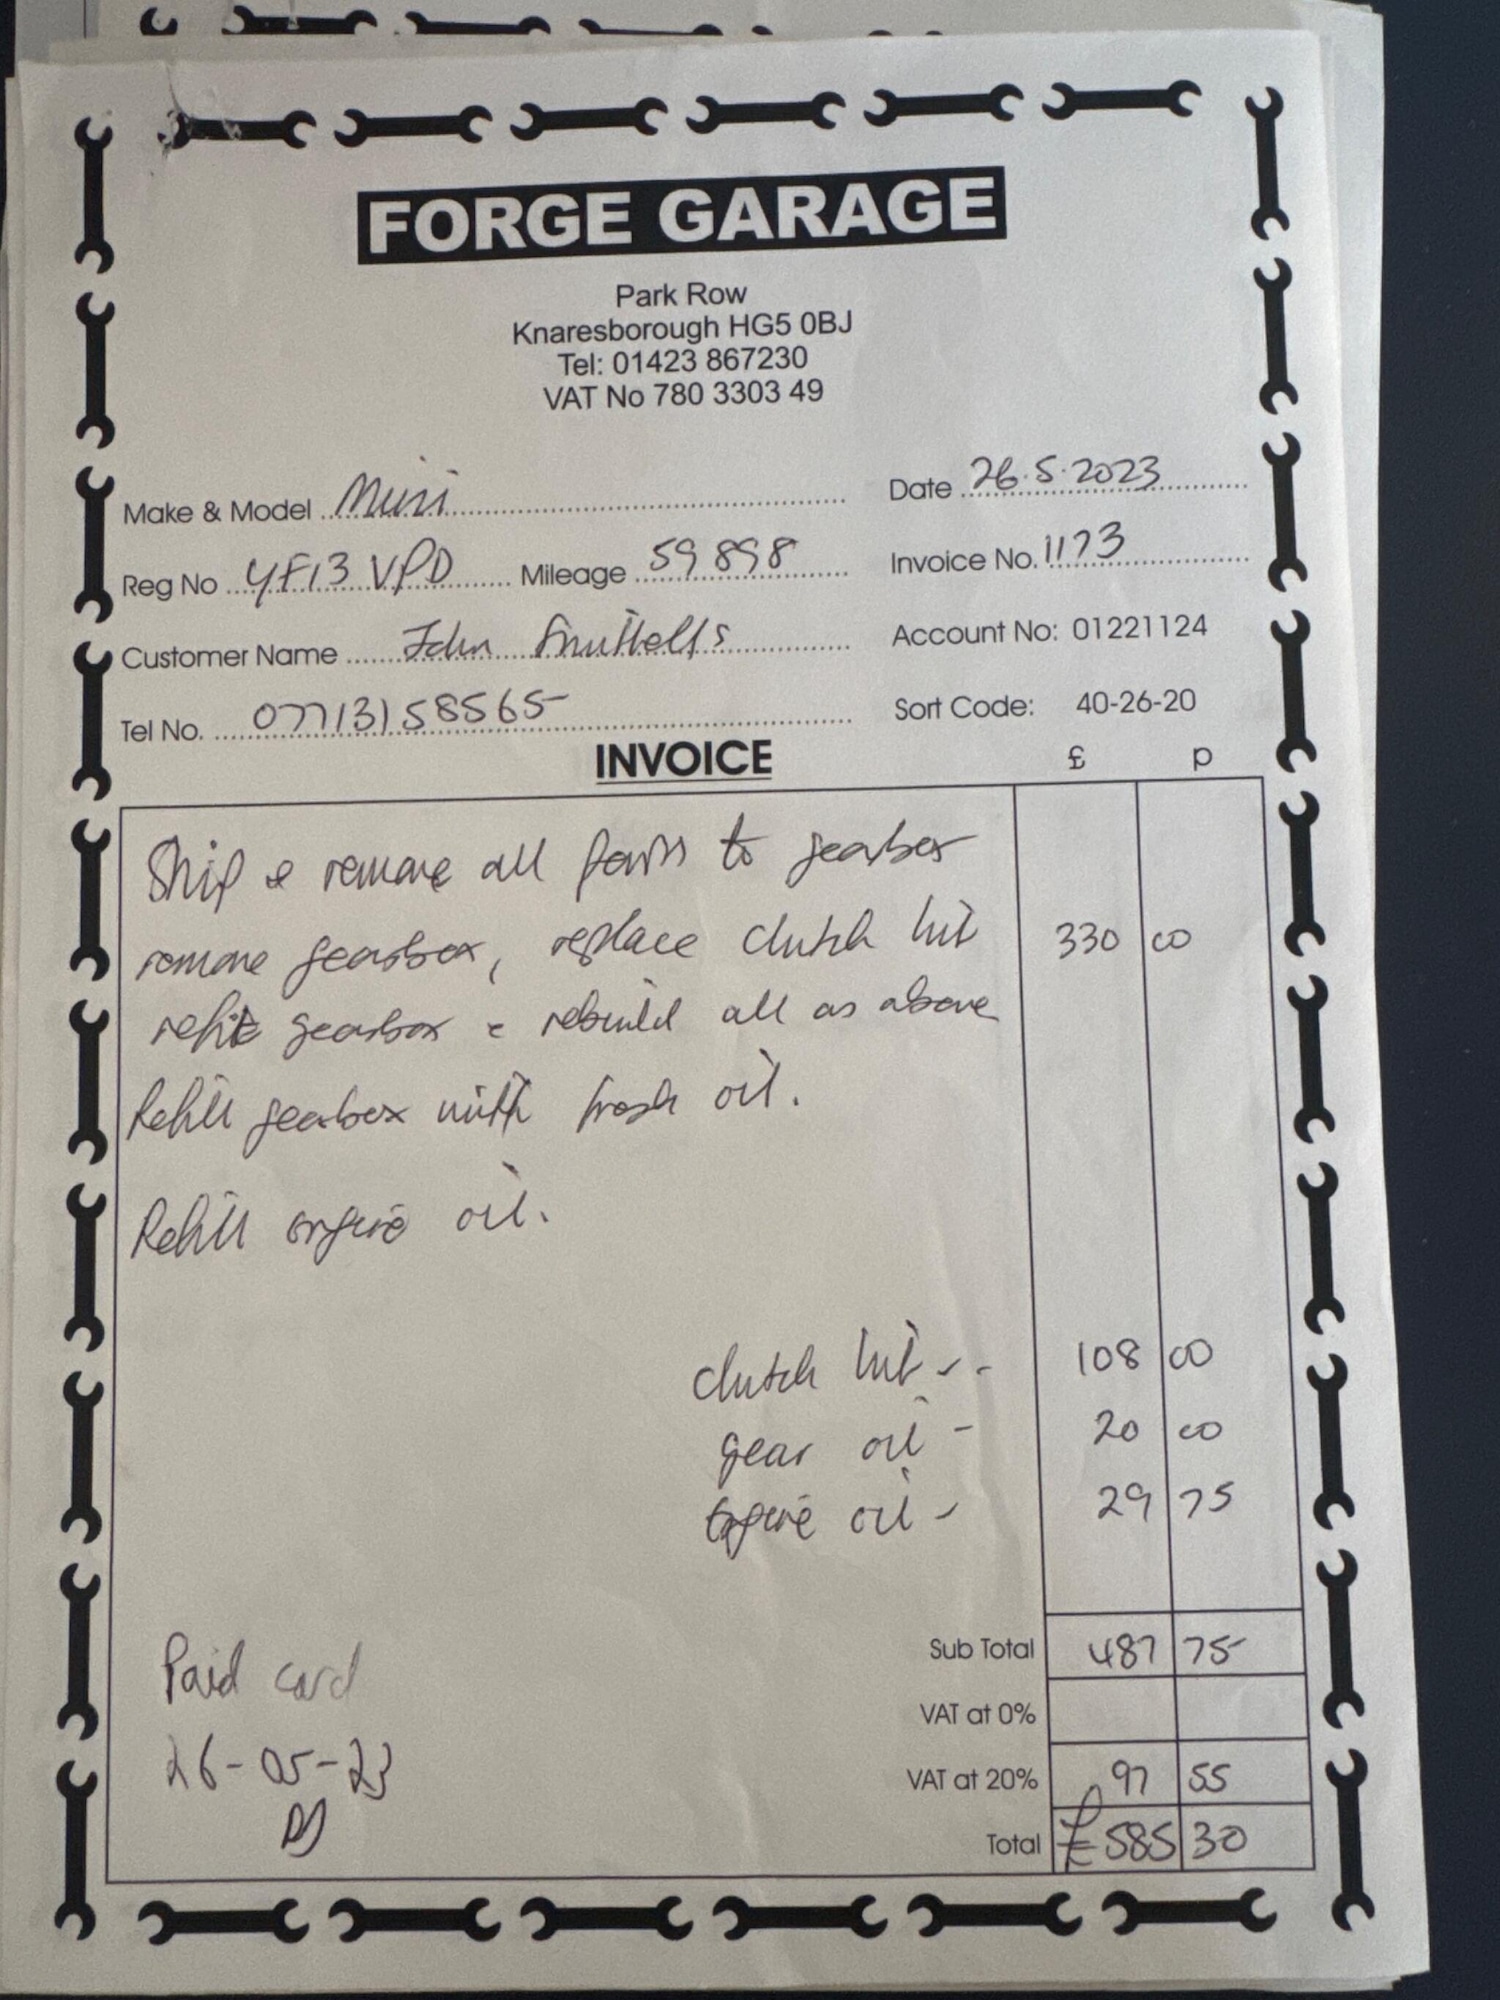 FORGE GARAGE
Park Row
Knaresborough HG5 0BJ
Tel: 01423 867230
VAT No 780 3303 49
Make & Model Mini Date 26.5.2023
Reg No YF13 VPD Mileage 59898 Invoice No. 1173
Customer Name John Account No: 01221124
Tel No. 07713158565 Sort Code: 40-26-20
INVOICE £ p
Strip & remove all parts to gearbox
remove gearbox, replace clutch kit 330 00
refit gearbox & rebuild all as above
Refill gearbox with fresh oil.
Refill engine oil.
clutch kit -- 108 00
gear oil - 20 00
engine oil - 29 75
Sub Total 487 75
Paid card
VAT at 0%
26-05-23
VAT at 20% 97 55
Total £585 30